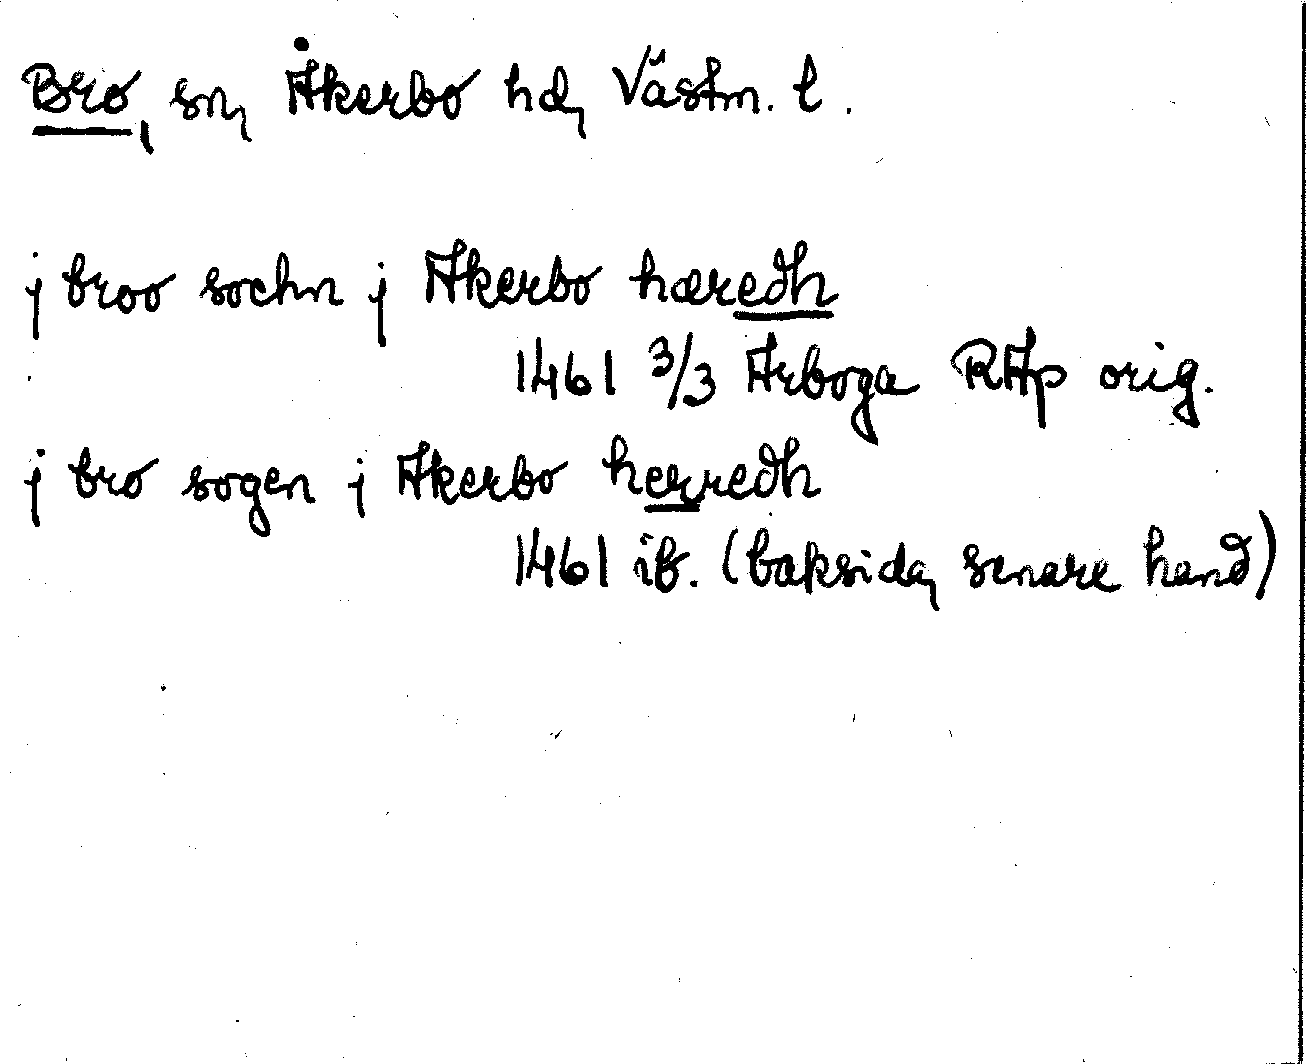 Bro, sn, Åkerbo hd, Västm. l.
j broo sochn j Akerbo hæredh
1461 3/3 Arboga RAp orig.
j bro sogen j Akerbo herredh
1461 ib. (baksida, senare hand)